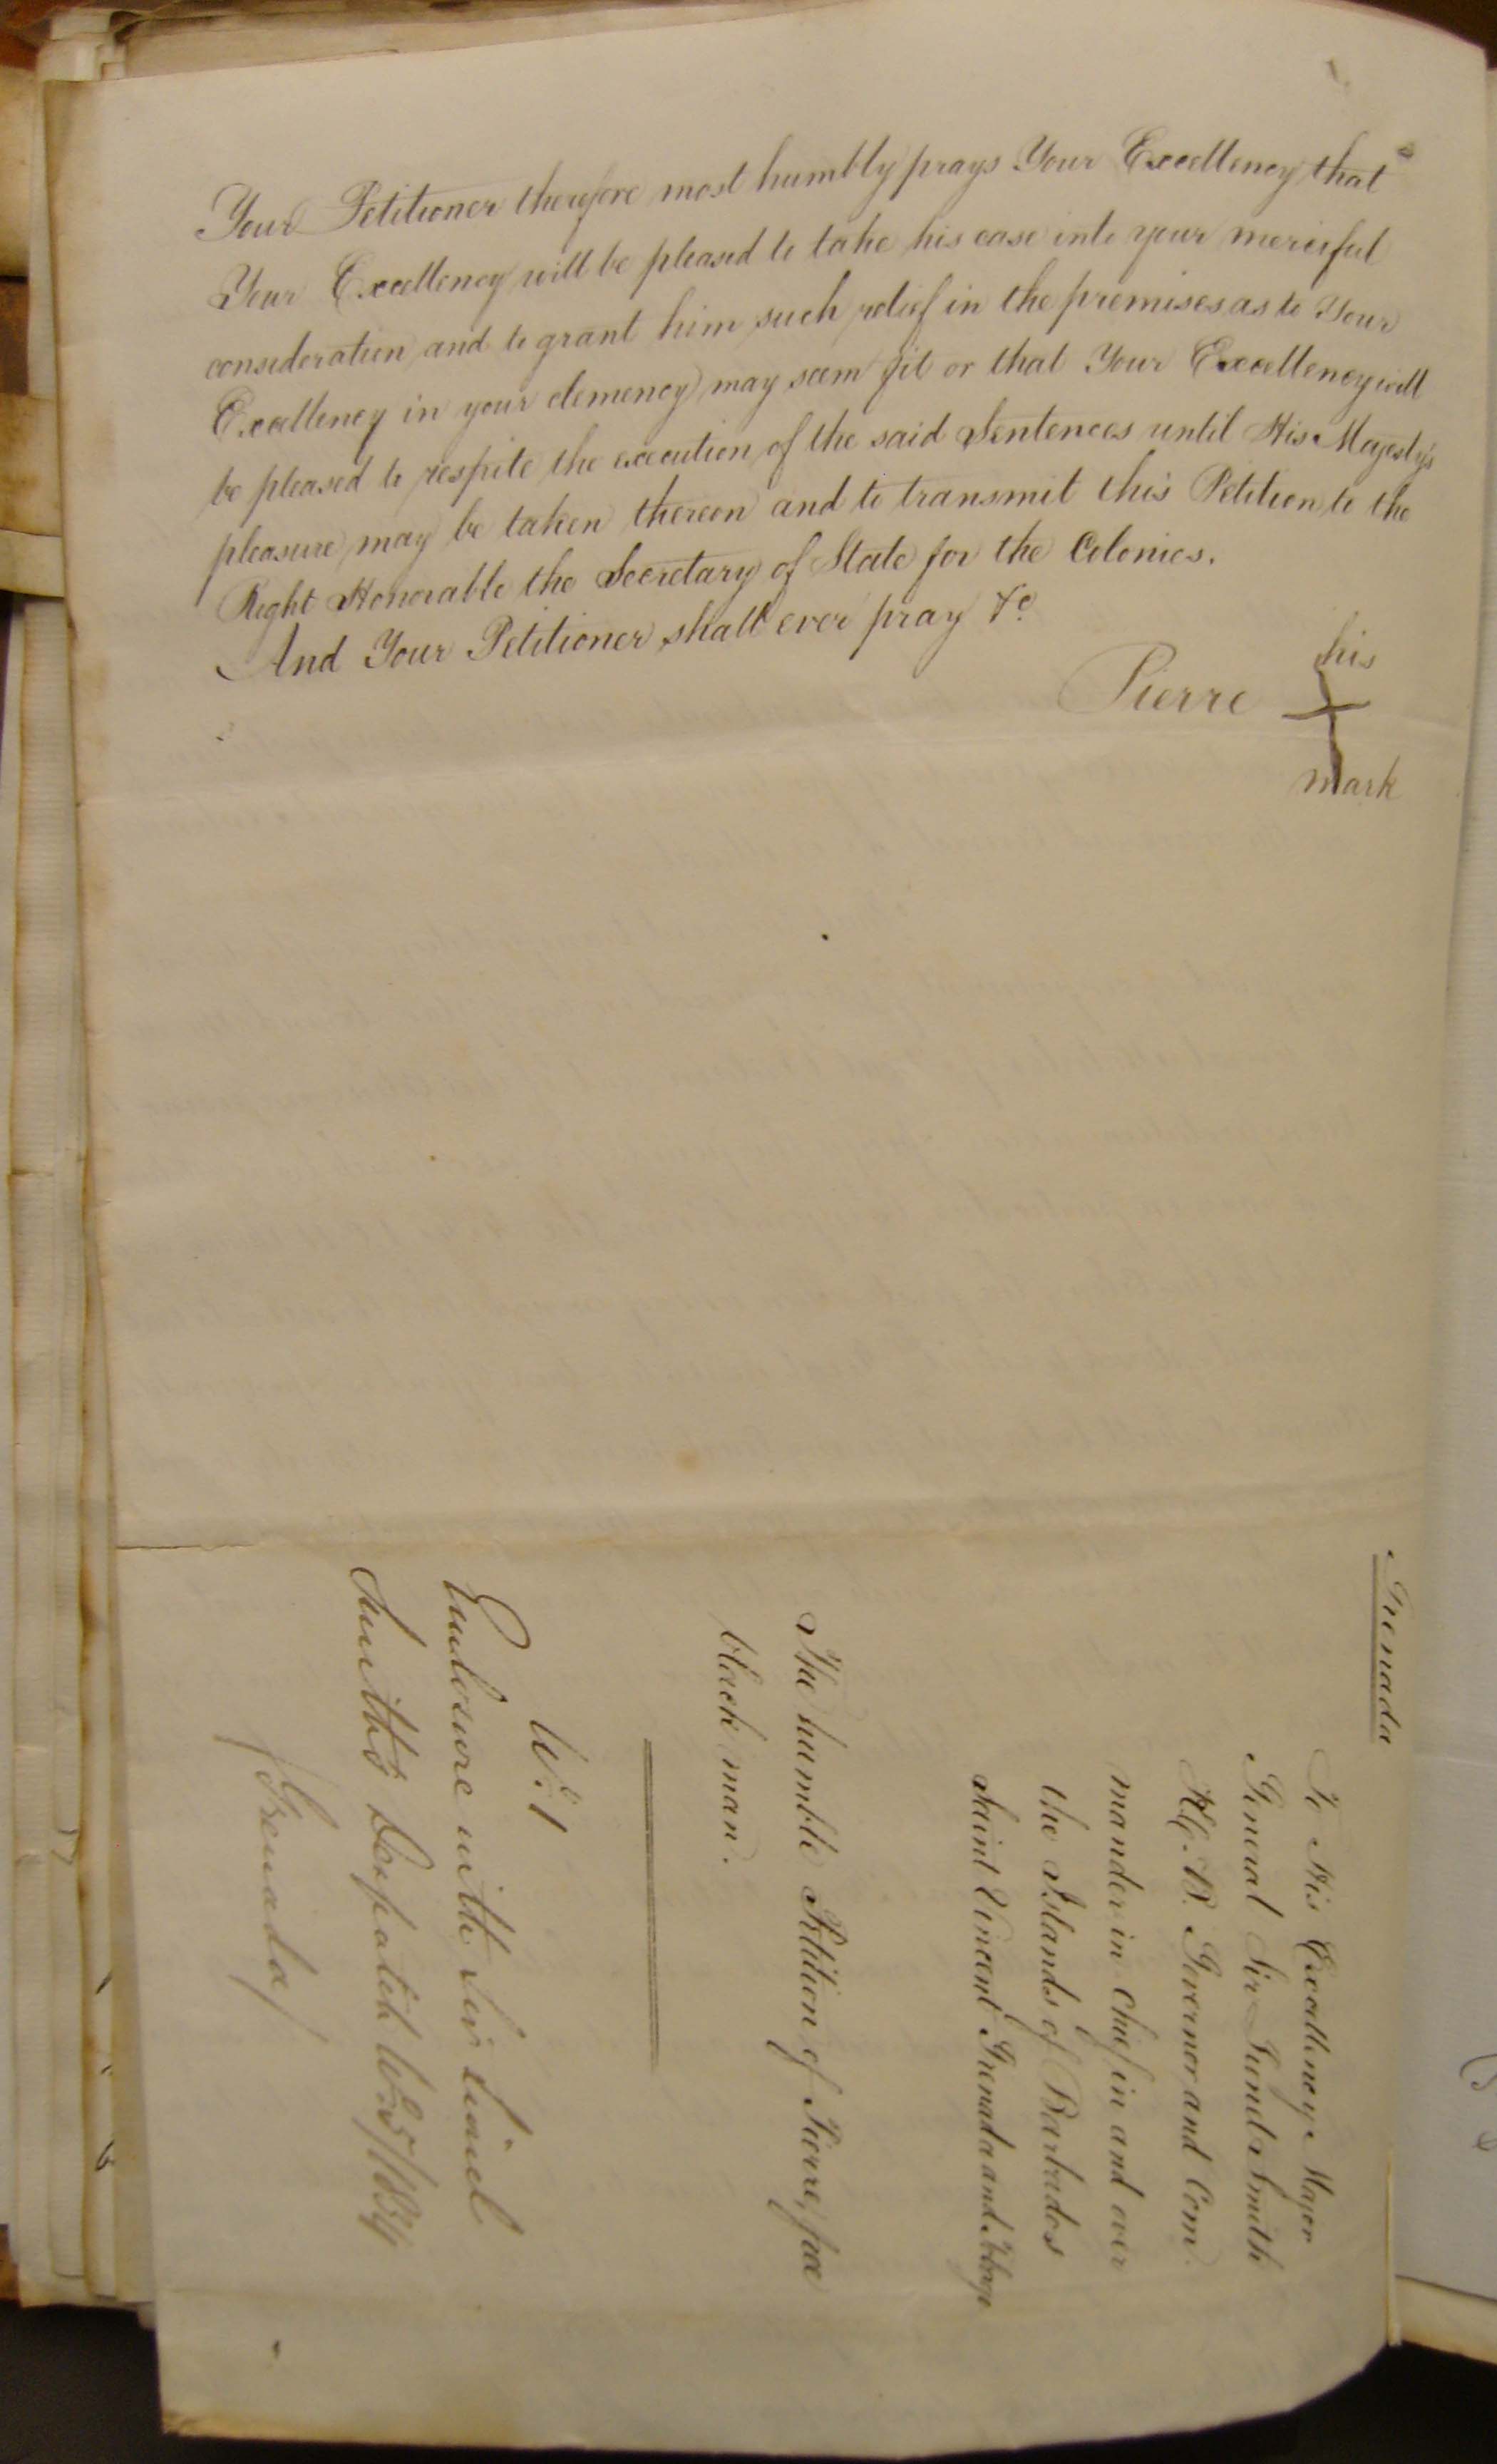 Your Petitioner therefore most humbly prays Your Excellency that
Your Excellency will be pleased to take his case into your merciful
consideration and to grant him such relief in the premises as to Your
Excellency in your clemency may seem fit or that Your Excellency will
be pleased to respite the execution of the said Sentences until His Majesty's
pleasure may be taken thereon and to transmit this Petition to the
Right Honorable the Secretary of State for the Colonies.
And Your Petitioner shall ever pray &c.
his
Pierre X
mark
Grenada
To His Excellency Major
General Sir Lionel Smith
K.C.B. Governor and Com
mander in Chief in and over
the Islands of Barbados
Saint Vincent Grenada and Tobago
The humble Petition of Pierre, free
black man.
No. 1
Enclosure with Sir Lionel
Smith's Despatch No. 5/1834
Grenada